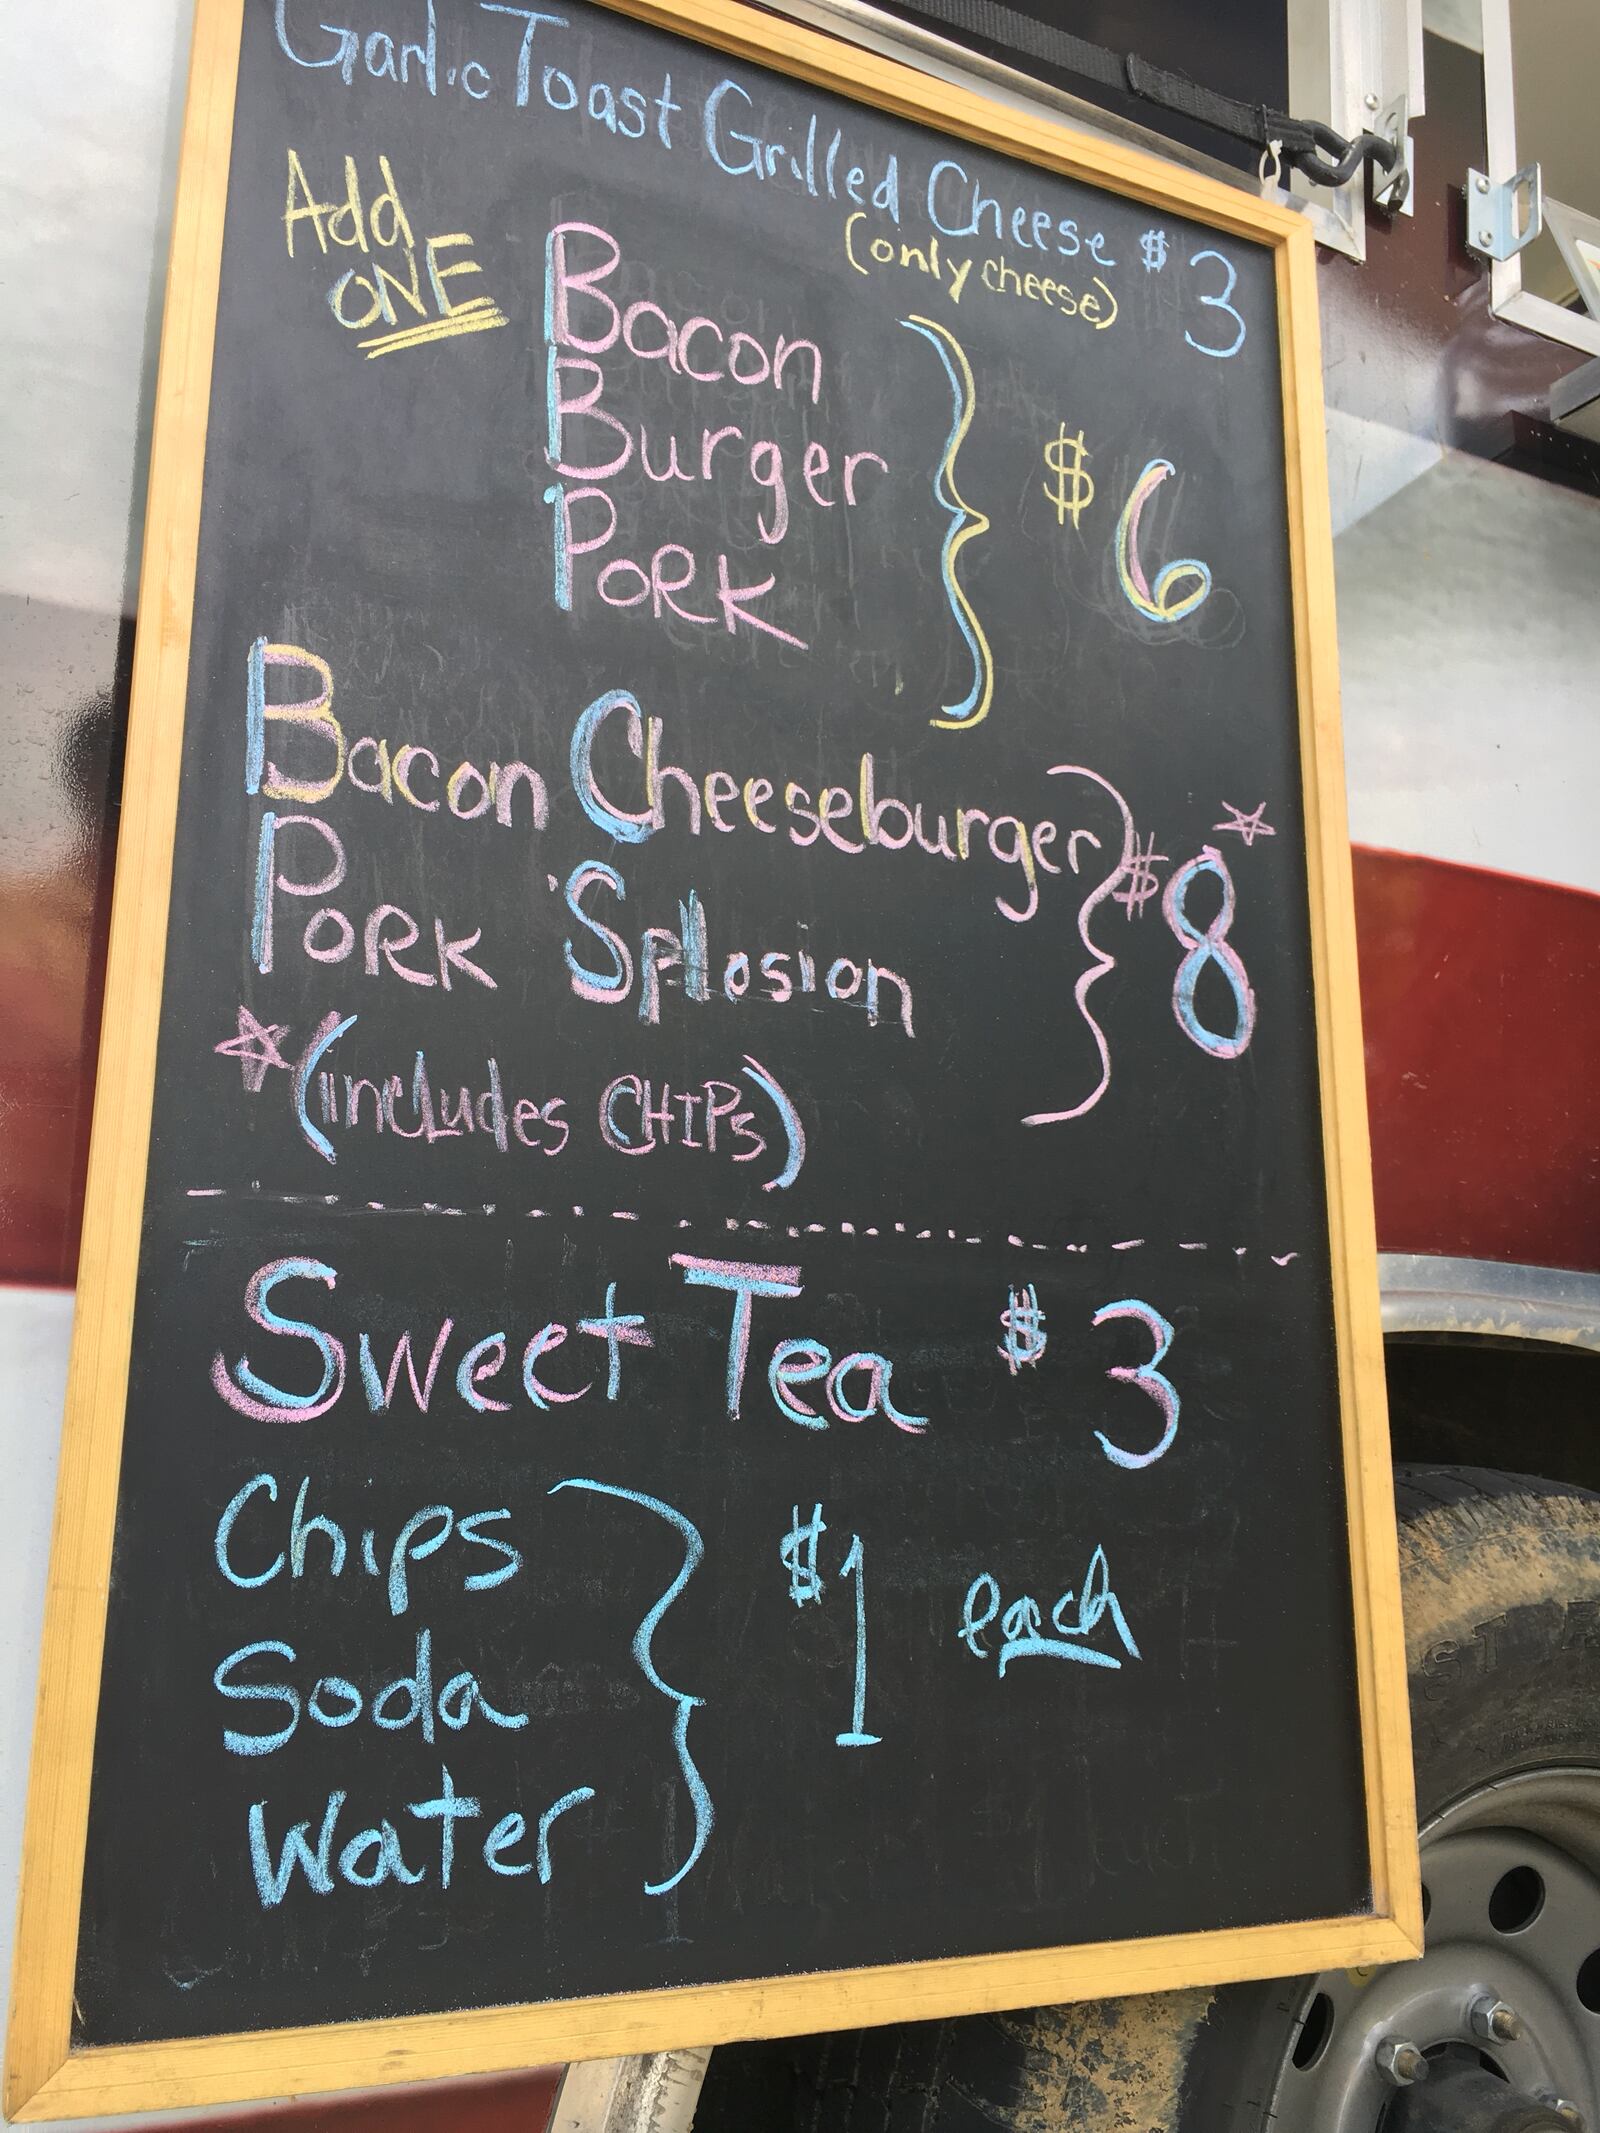 Garlic Toast Grilled Cheese $3
(only cheese)
Add ONE
Bacon
Burger
PORK
$6
Bacon Cheeseburger
PORK 'Splosion
$8☆
☆(includes CHIPS)
Sweet Tea $3
Chips
Soda
Water
$1 each